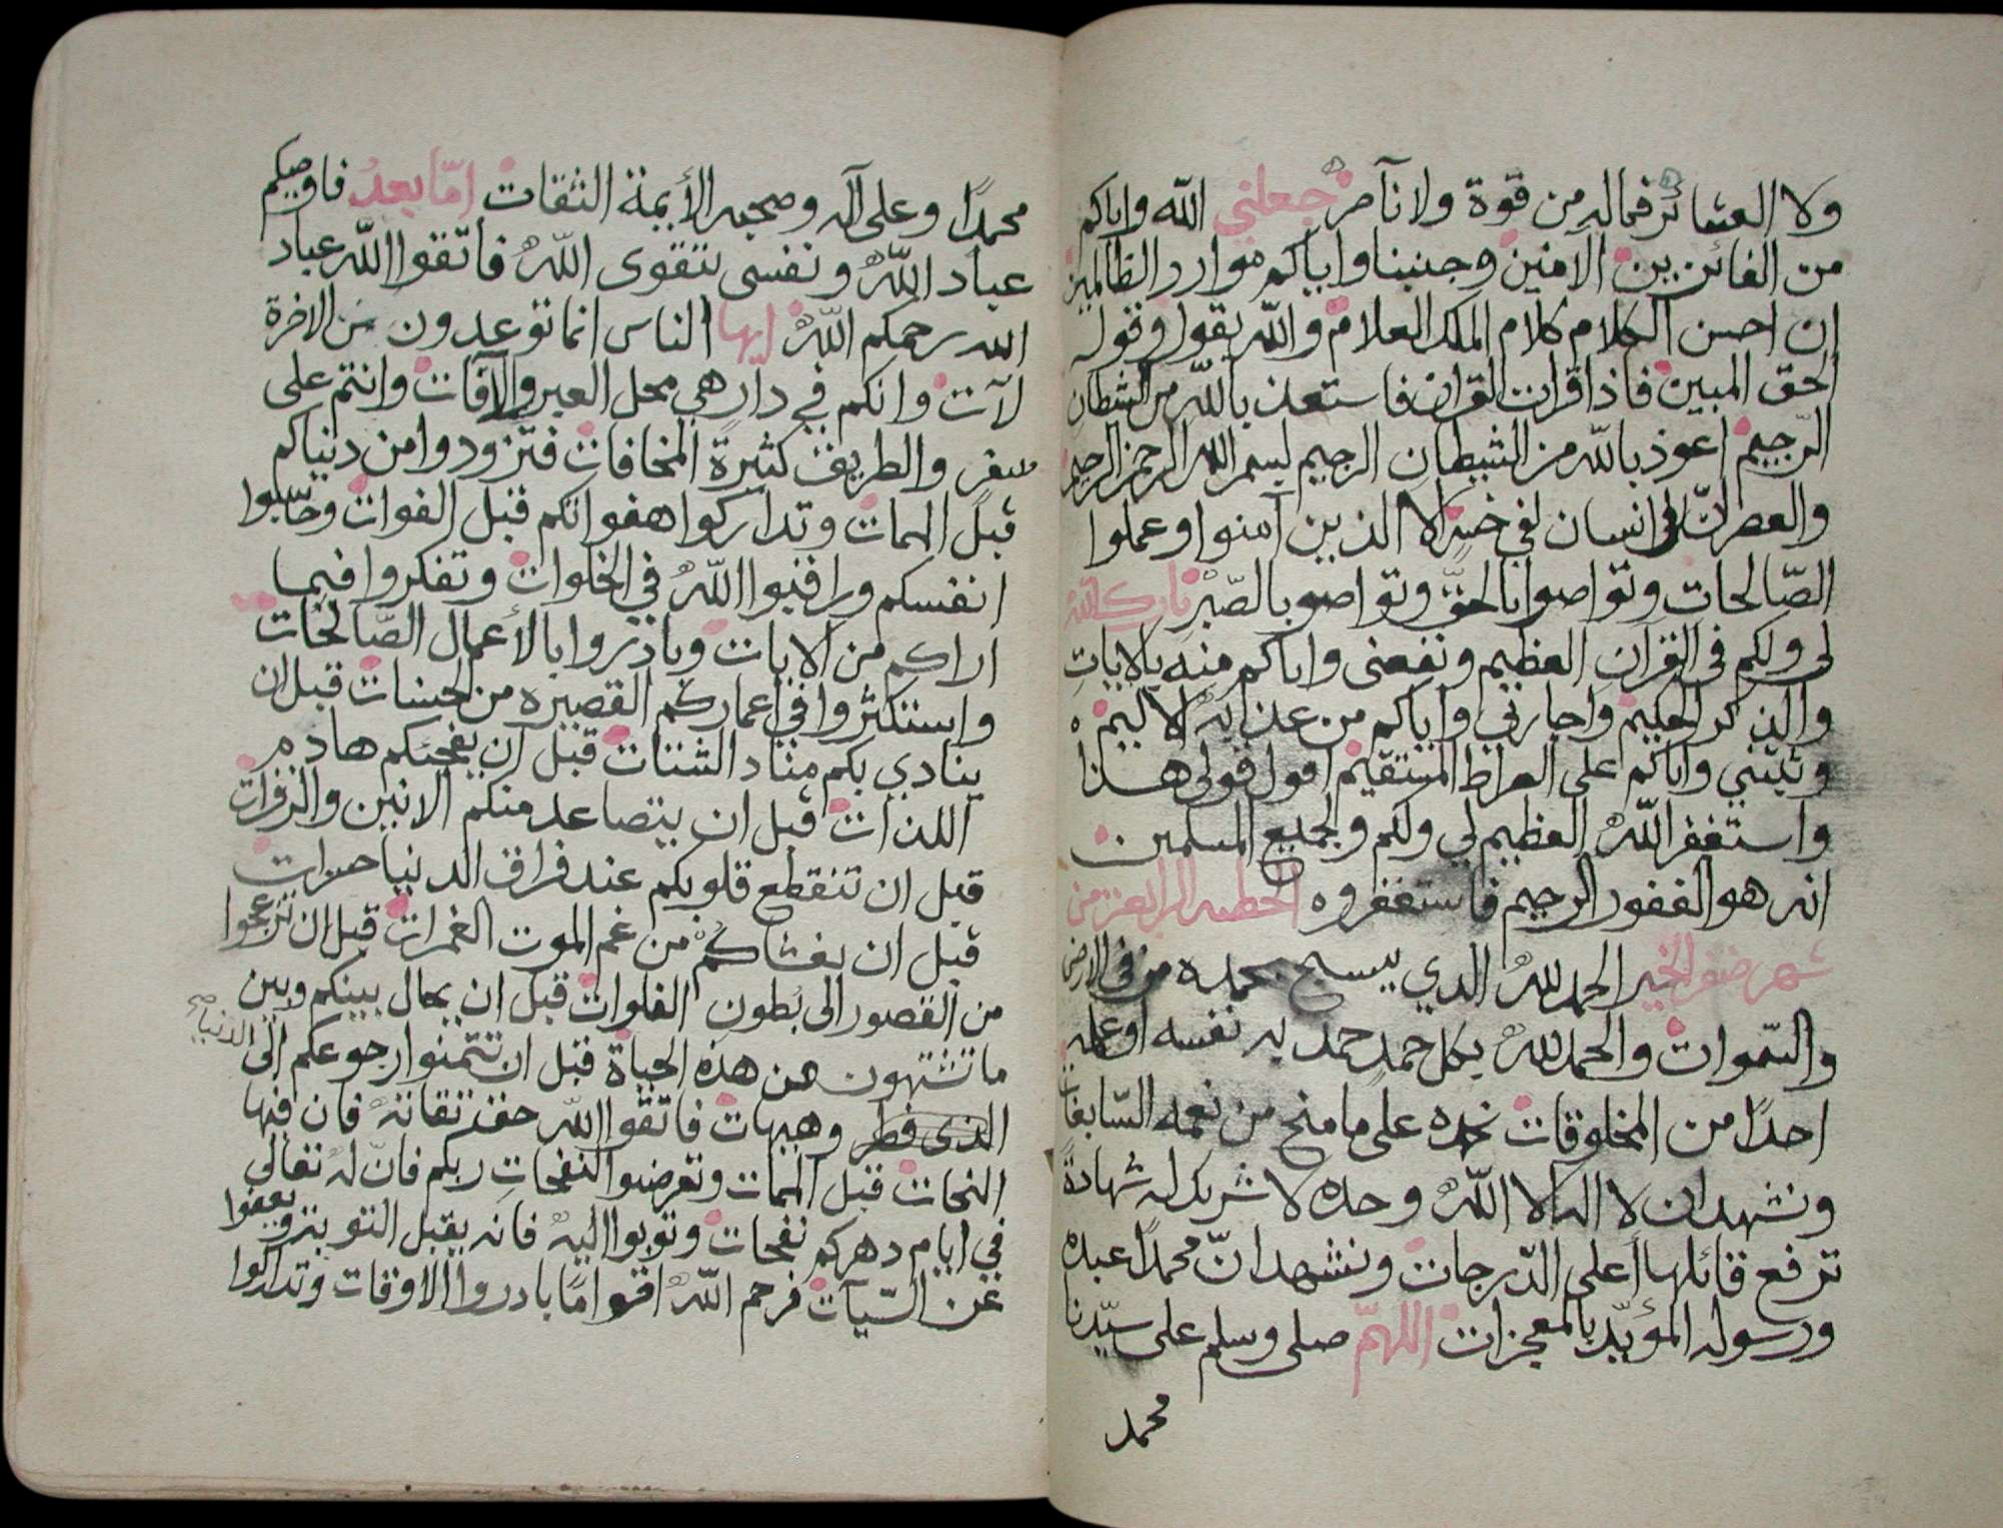 ولا العشائر فماله من قوة ولا نآصر جعلني الله واياكم
من الفائزين الآمنين وجنبنا واياكم موارد الظالمين
ان احسن الكلام كلام الملك العلام والله يقول وقوله
الحق المبين فاذا قرات القران فاستعذ بالله من الشطان
الرّجيم اعوذ بالله من الشيطان الرجيم بسم الله الرحمن الرحيم
والعصر انّ انسان لفي خسر الا الذين آمنوا وعملوا
الصّالحات وتواصوا بالحقّ وتواصو بالصّبر بارك الله
لى ولكم فى القرآن العظيم ونفعنى واياكم منه بالايات
والذكر الحكيم واجارني واياكم من عذابه الاليم
وثبتني واياكم على الصراط المستقيم اقول قولى هذا
واستغفر اللّه العظيم لي ولكم ولجميع المسلمين
انه هو الغفور الرحيم فاستغفروه الخطبه الرابعة من
شهر صفر الخير الحمد للّه الدي يسبح بحمده من فى الارض
والسّموات والحمد للّه بكل حمدٍ حمد به نفسه او علمه
احدًا من المخلوقات نحمده على ما منح من نعمه السّابغات
ونشهد ان لا اله الا اللّه وحده لا شريك له شهادة
ترفع قائلها أعلى الدّرجات ونشهد انّ محمدًا عبده
ورسوله المؤيّد بالمعجزات اللهمّ صلى وسلم على سيّدنا
محمد
محمدًا وعلى آله وصحبه الأيمة الثقات امّا بعد فاوصيكم
عباد اللّه ونفسى بتقوى اللّه فاتقوا اللّه عباد
الله رحمكم اللّه ايها الناس انما توعدون من الاخرة
لآت وانكم في دار هي محل العبر والآفات وانتم على
سفر والطريق كثيرة المخافات فتزودوا من دنياكم
قبل الممات وتداركوا هفواتكم قبل الفوات وحاسبوا
انفسكم وراقبوا اللّه في الخلوات وتفكروا فيما
اراكم من الايات وبادروا بالأعمال الصّالحات
واستكثروا في اعماركم القصيره من الحسنات قبل ان
ينادي بكم مناد الشتات قبل ان يفجئكم هادم
اللذات قبل ان يتصاعد منكم الانين والزفرات
قبل ان تنقطع قلوبكم عند فراق الدنيا حسرات
قبل ان يغشاكم من غم الموت الغمرات قبل ان تزعجوا
من القصور الى بُطون الفلوات قبل ان يحال بينكم وبين
ما تشتهون من هذه الحياة قبل ان تتمنوا رجوعكم الى الدنيا صح
الذى فطر وهيهات فاتقوا اللّه حق تقاته فان فيها
النجات قبل الممات وتعرضوا النفحات ربكم فانّ له تعالى
في ايام دهركم نفحات وتوبوا اليه فانه يقبل التوبة ويعفوا
عن السّيآت فرحم اللّه اقواما بادروا الاوقات وتداركوا